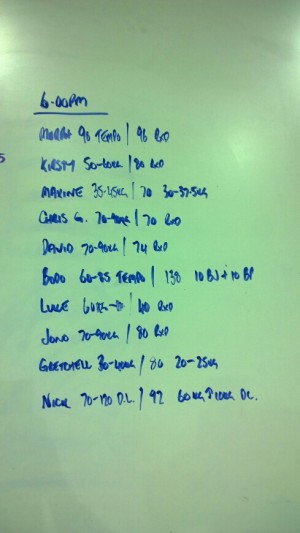 6-00PM
90 TEMPO | 96 RXD
KIRSTY 50-60KG | 80 RXD
MAXINE 35-45KG | 70 30-37.5KG
CHRIS G. 70-90KG | 70 RXD
DAVID 70-90KG | 74 RXD
BODO 60-85 TEMPO | 138 10 BJ + 10 BP
LUKE 60KG | 40 RXD
JONO 70-90KG | 80 RXD
GRETCHELL 30-40KG | 86 20-25KG
NICK 70-170 D.L. | 92 60KG 100KG DL.